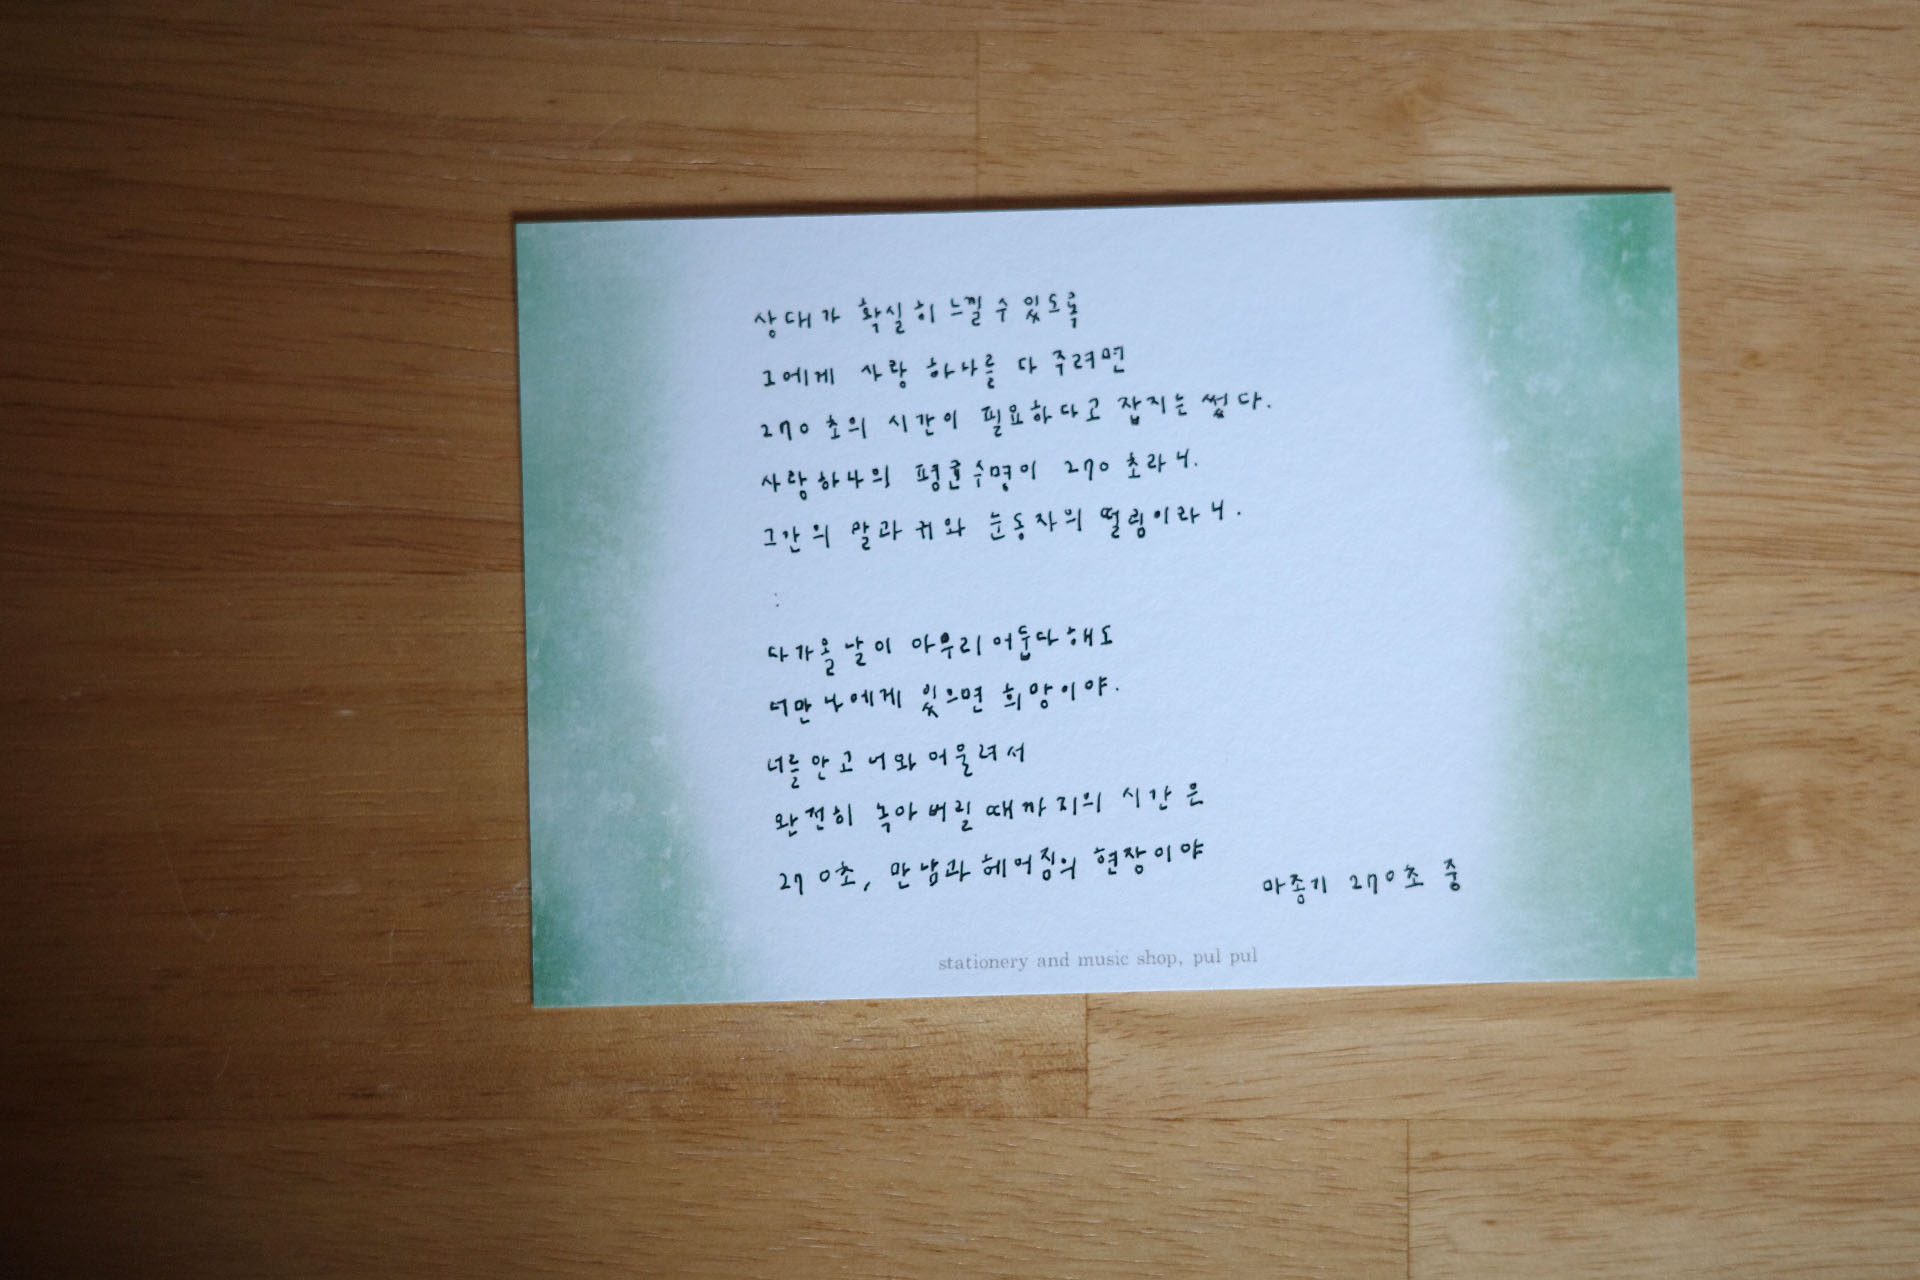 상대가 확실히 느낄 수 있도록
그에게 사랑 하나를 다 주려면
270초의 시간이 필요하다고 잡지는 썼다.
사랑하나의 평균수명이 270초라니.
그간의 말과 귀와 눈동자의 떨림이라니.
:
다가올 날이 아무리 어둡다해도
너만 나에게 있으면 희망이야.
너를 안고 너와 어울려서
완전히 녹아버릴 때까지의 시간은
270초, 만남과 헤어짐의 현장이야
마종기 270초 중
stationery and music shop, pul pul